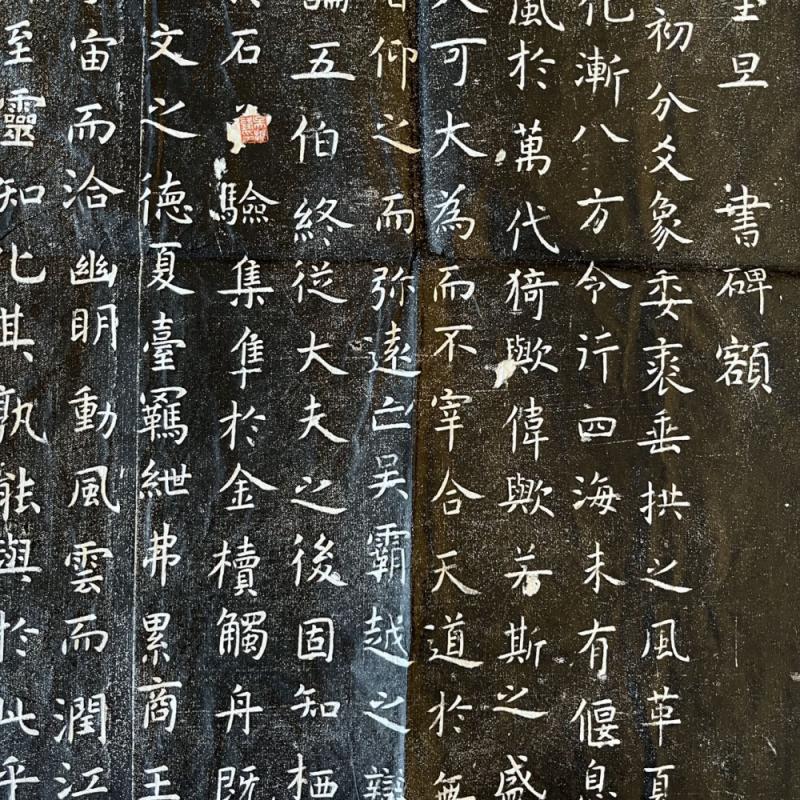 旦書碑額
初分爻象委裘垂拱之風革夏
化漸八方令行四海未有偃息
風於萬代猗歟偉歟若斯之盛
可大為而不宰合天道於無
仰之而弥遠亡吴霸越之辯
論五伯終從大夫之後固知栖
石驗集隼於金櫝觸舟既
文之德夏臺羈紲弗累商王
宙而洽幽明動風雲而潤江
至靈知化其孰能與於此乎